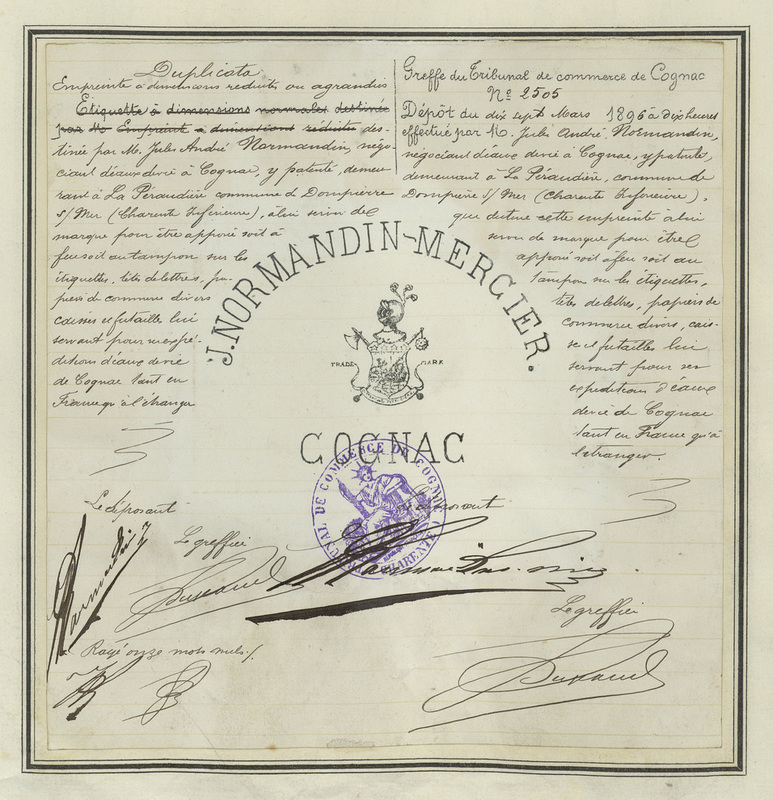 Duplicata
Empreinte à dimensions réduites ou agrandies
Etiquette à dimensions normales destinée
par Mr Empreinte à dimensions réduites des-
tinée par M. Jules André Normandin, négo-
ciant d'eaux de vie à Cognac, y patenté, demeu-
rant à La Péraudière commune de Dompierre
s/Mer (Charente Inférieure), à lui servir de
marque pour être apposé soit à
feu soit au tampon sur les
étiquettes, têtes de lettres, pa-
piers de commerce divers
caisses et futailles lui
servant pour ses expé-
ditions d'eaux de vie
de Cognac tant en
France qu'à l'étranger
Le déposant
Normandin
Le greffier
Rayé onze mots nuls ./.
Greffe du Tribunal de commerce de Cognac
No 2505
Dépôt du dix sept Mars 1896 à dix heures
effectué par M. Jules André Normandin,
négociant d'eaux de vie à Cognac, y patenté,
demeurant à La Péraudière, commune de
Dompierre S/Mer (Charente Inférieure),
que destine cette empreinte à lui
servir de marque pour être
apposé soit à feu soit au
tampon sur les étiquettes,
têtes de lettres, papiers de
commerce divers, cais-
ses et futailles lui
servant pour ses
expéditions d'eaux
de vie de Cognac
tant en France qu'à
l'étranger.
J. NORMANDIN-MERCIER.
TRADE MARK
COGNAC
TRIBUNAL DE COMMERCE DE COGNAC
CHARENTE
Le déposant
Le greffier